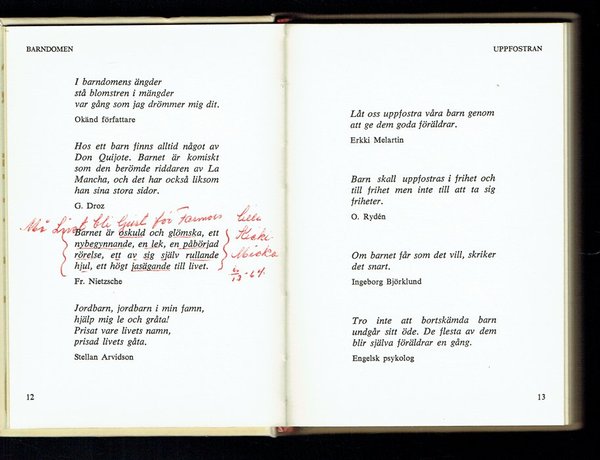 BARNDOMEN
I barndomens ängder
stå blomstren i mängder
var gång som jag drömmer mig dit.
Okänd författare
Hos ett barn finns alltid något av
Don Quijote. Barnet är komiskt
som den berömde riddaren av La
Mancha, och det har också liksom
han sina stora sidor.
G. Droz
Må Livet bli ljust för Farmors lilla
Kicki-
Micka
Barnet är oskuld och glömska, ett
nybegynnande, en lek, en påbörjad
rörelse, ett av sig själv rullande
hjul, ett högt jasägande till livet.
Fr. Nietzsche
Jordbarn, jordbarn i min famn,
hjälp mig le och gråta!
Prisat vare livets namn,
prisad livets gåta.
Stellan Arvidson
12
UPPFOSTRAN
Låt oss uppfostra våra barn genom
att ge dem goda föräldrar.
Erkki Melartin
Barn skall uppfostras i frihet och
till frihet men inte till att ta sig
friheter.
O. Rydén
Om barnet får som det vill, skriker
det snart.
Ingeborg Björklund
Tro inte att bortskämda barn
undgår sitt öde. De flesta av dem
blir själva föräldrar en gång.
Engelsk psykolog
13